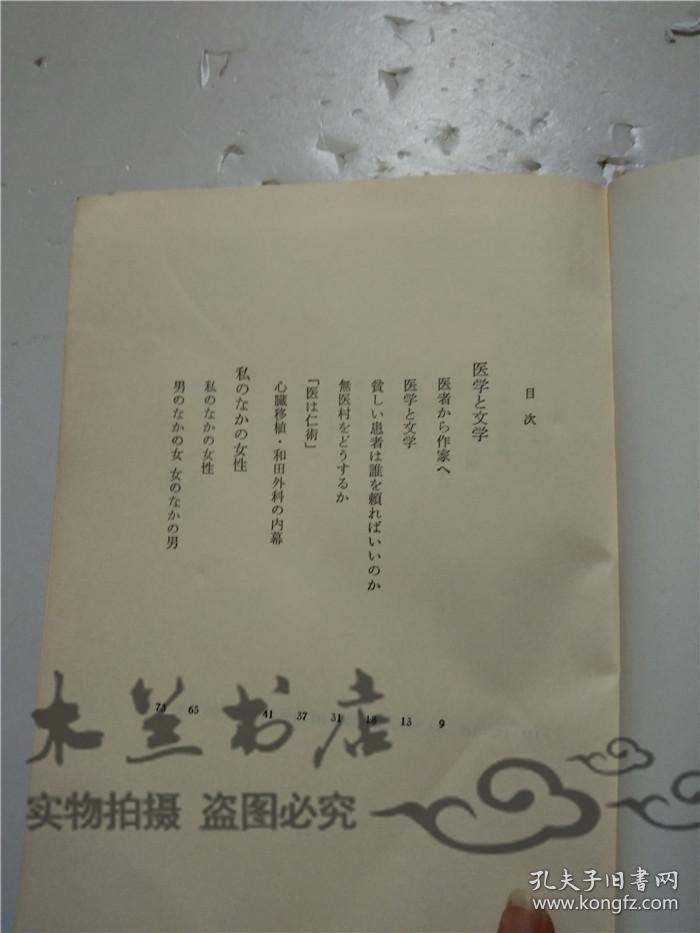 目次
医学と文学
医者から作家へ 9
医学と文学 13
貧しい患者は誰を頼ればいいのか 18
無医村をどうするか 31
「医は仁術」 37
心臓移植・和田外科の内幕 41
私のなかの女性
私のなかの女性 65
男のなかの女 女のなかの男 73
木兰书店
实物拍摄 盗图必究
孔夫子旧书网
www.kongfz.com